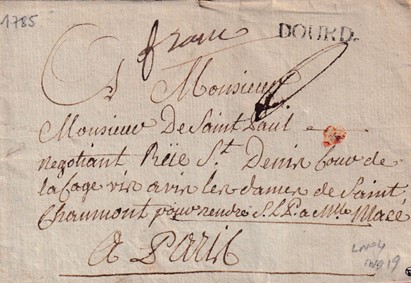 1785
franc
DOURD.
A Monsieur
Monsieur De Saint Paul
negotiant Rüe St. Denis cour de
la Cage vis avis les dames de Saint
Chaumont pour rendre S.l.P. a Mlle Macé
A Paris
LN°4
19